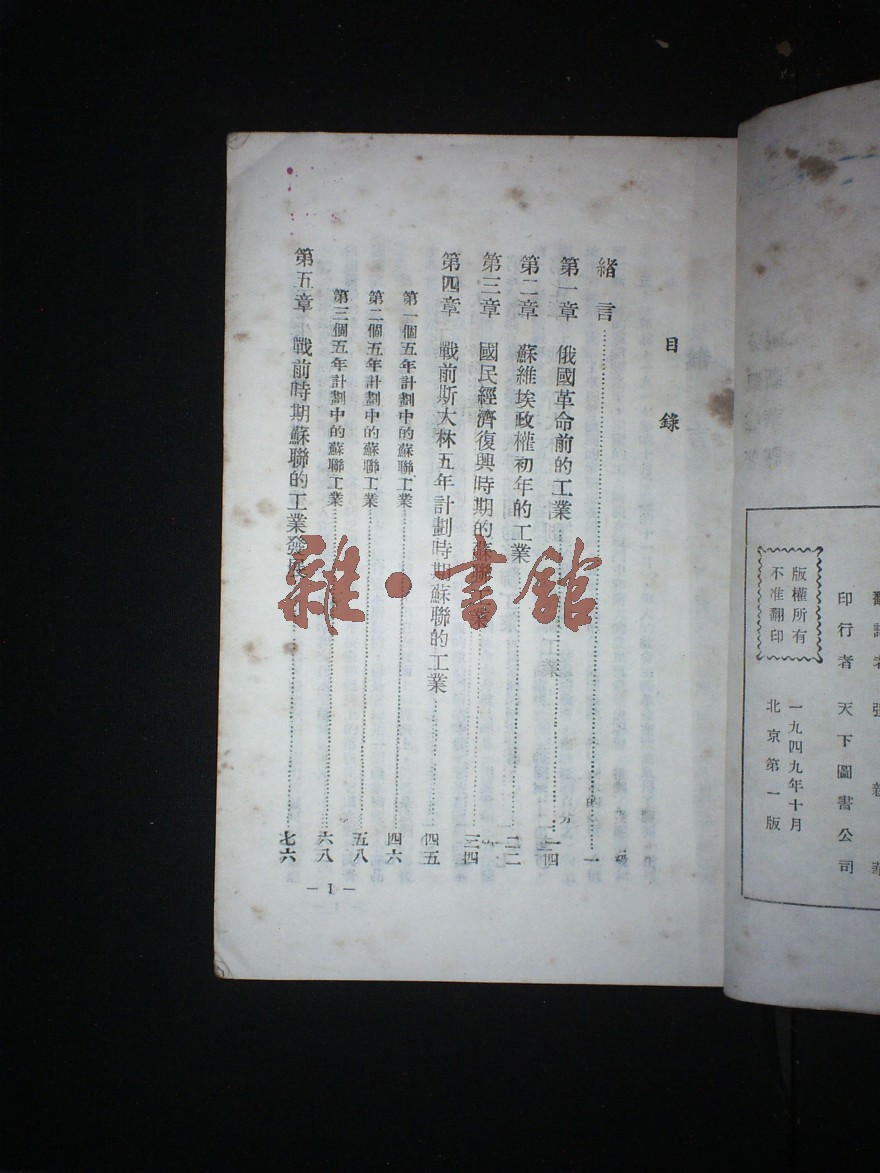 版權所有
不准翻印
印行者 天下圖書公司
一九四九年十月
北京第一版
目錄
緒言……一
第一章 俄國革命前的工業……一四
第二章 蘇維埃政權初年的工業……二二
第三章 國民經濟復興時期的蘇聯工業……三四
第四章 戰前斯大林五年計劃時期蘇聯的工業……四五
第一個五年計劃中的蘇聯工業……四六
第二個五年計劃中的蘇聯工業……五八
第三個五年計劃中的蘇聯工業……六八
第五章 戰前時期蘇聯的工業發展……七六
— 1 —
雜·書館